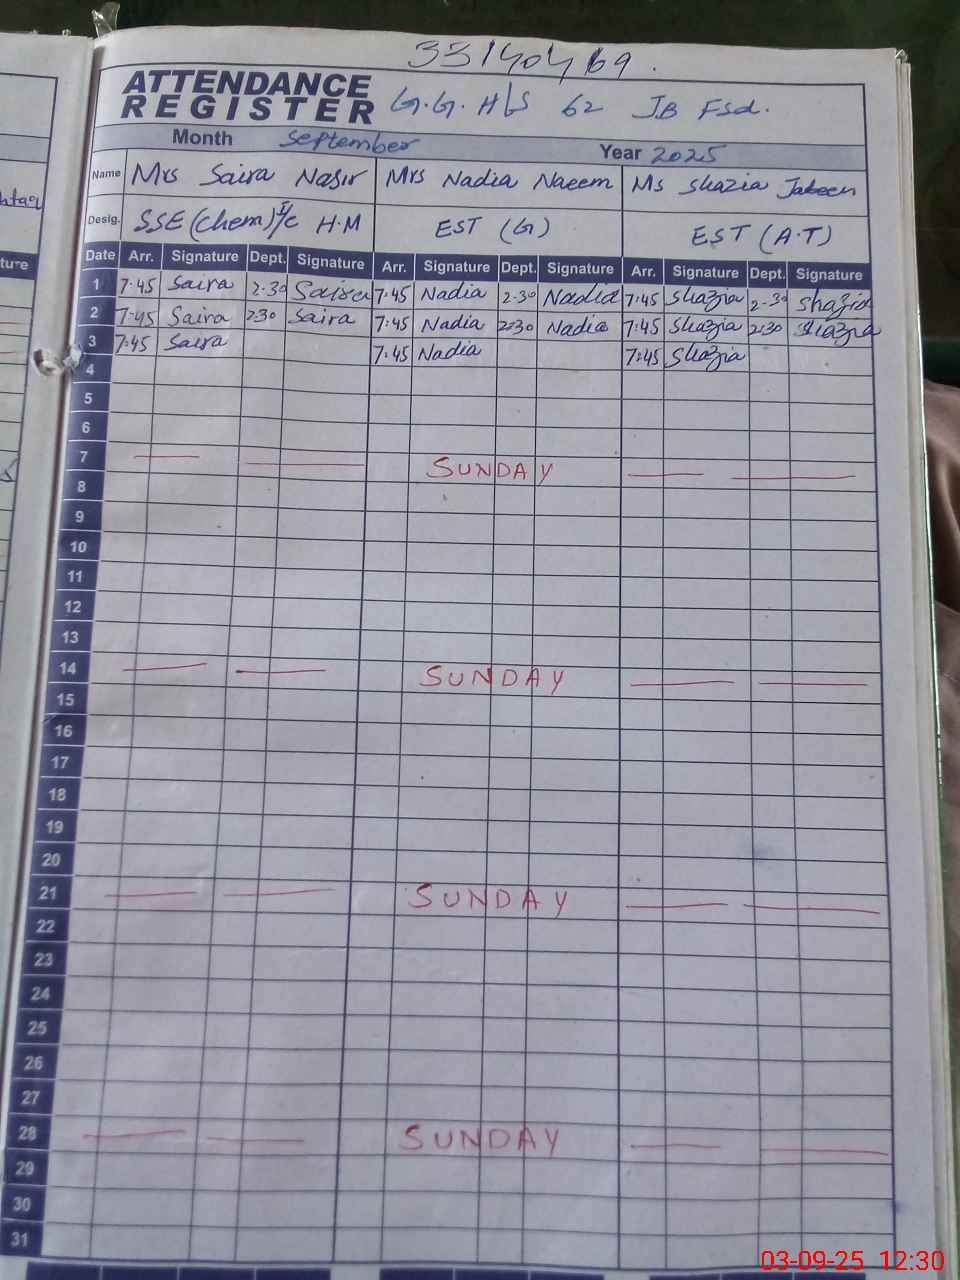 33140469.
ATTENDANCE REGISTER G.G. H/S 62 JB Fsd.
Month September Year 2025
Name Mrs Saira Nasir Mrs Nadia Naeem Ms Shazia Jabeen
Desig. SSE (Chem) I/C H.M EST (G) EST (A.T)
Date Arr. Signature Dept. Signature Arr. Signature Dept. Signature Arr. Signature Dept. Signature
1 7:45 Saira 2-30 Saira 7:45 Nadia 2-30 Nadia 7:45 Shazia 2-30 Shazia
2 7:45 Saira 2:30 Saira 7:45 Nadia 2:30 Nadia 7:45 Shazia 2:30 Shazia
3 7:45 Saira 7:45 Nadia 7:45 Shazia
4
5
6
7 SUNDAY
8
9
10
11
12
13
14 SUNDAY
15
16
17
18
19
20
21 SUNDAY
22
23
24
25
26
27
28 SUNDAY
29
30
31
03-09-25 12:30